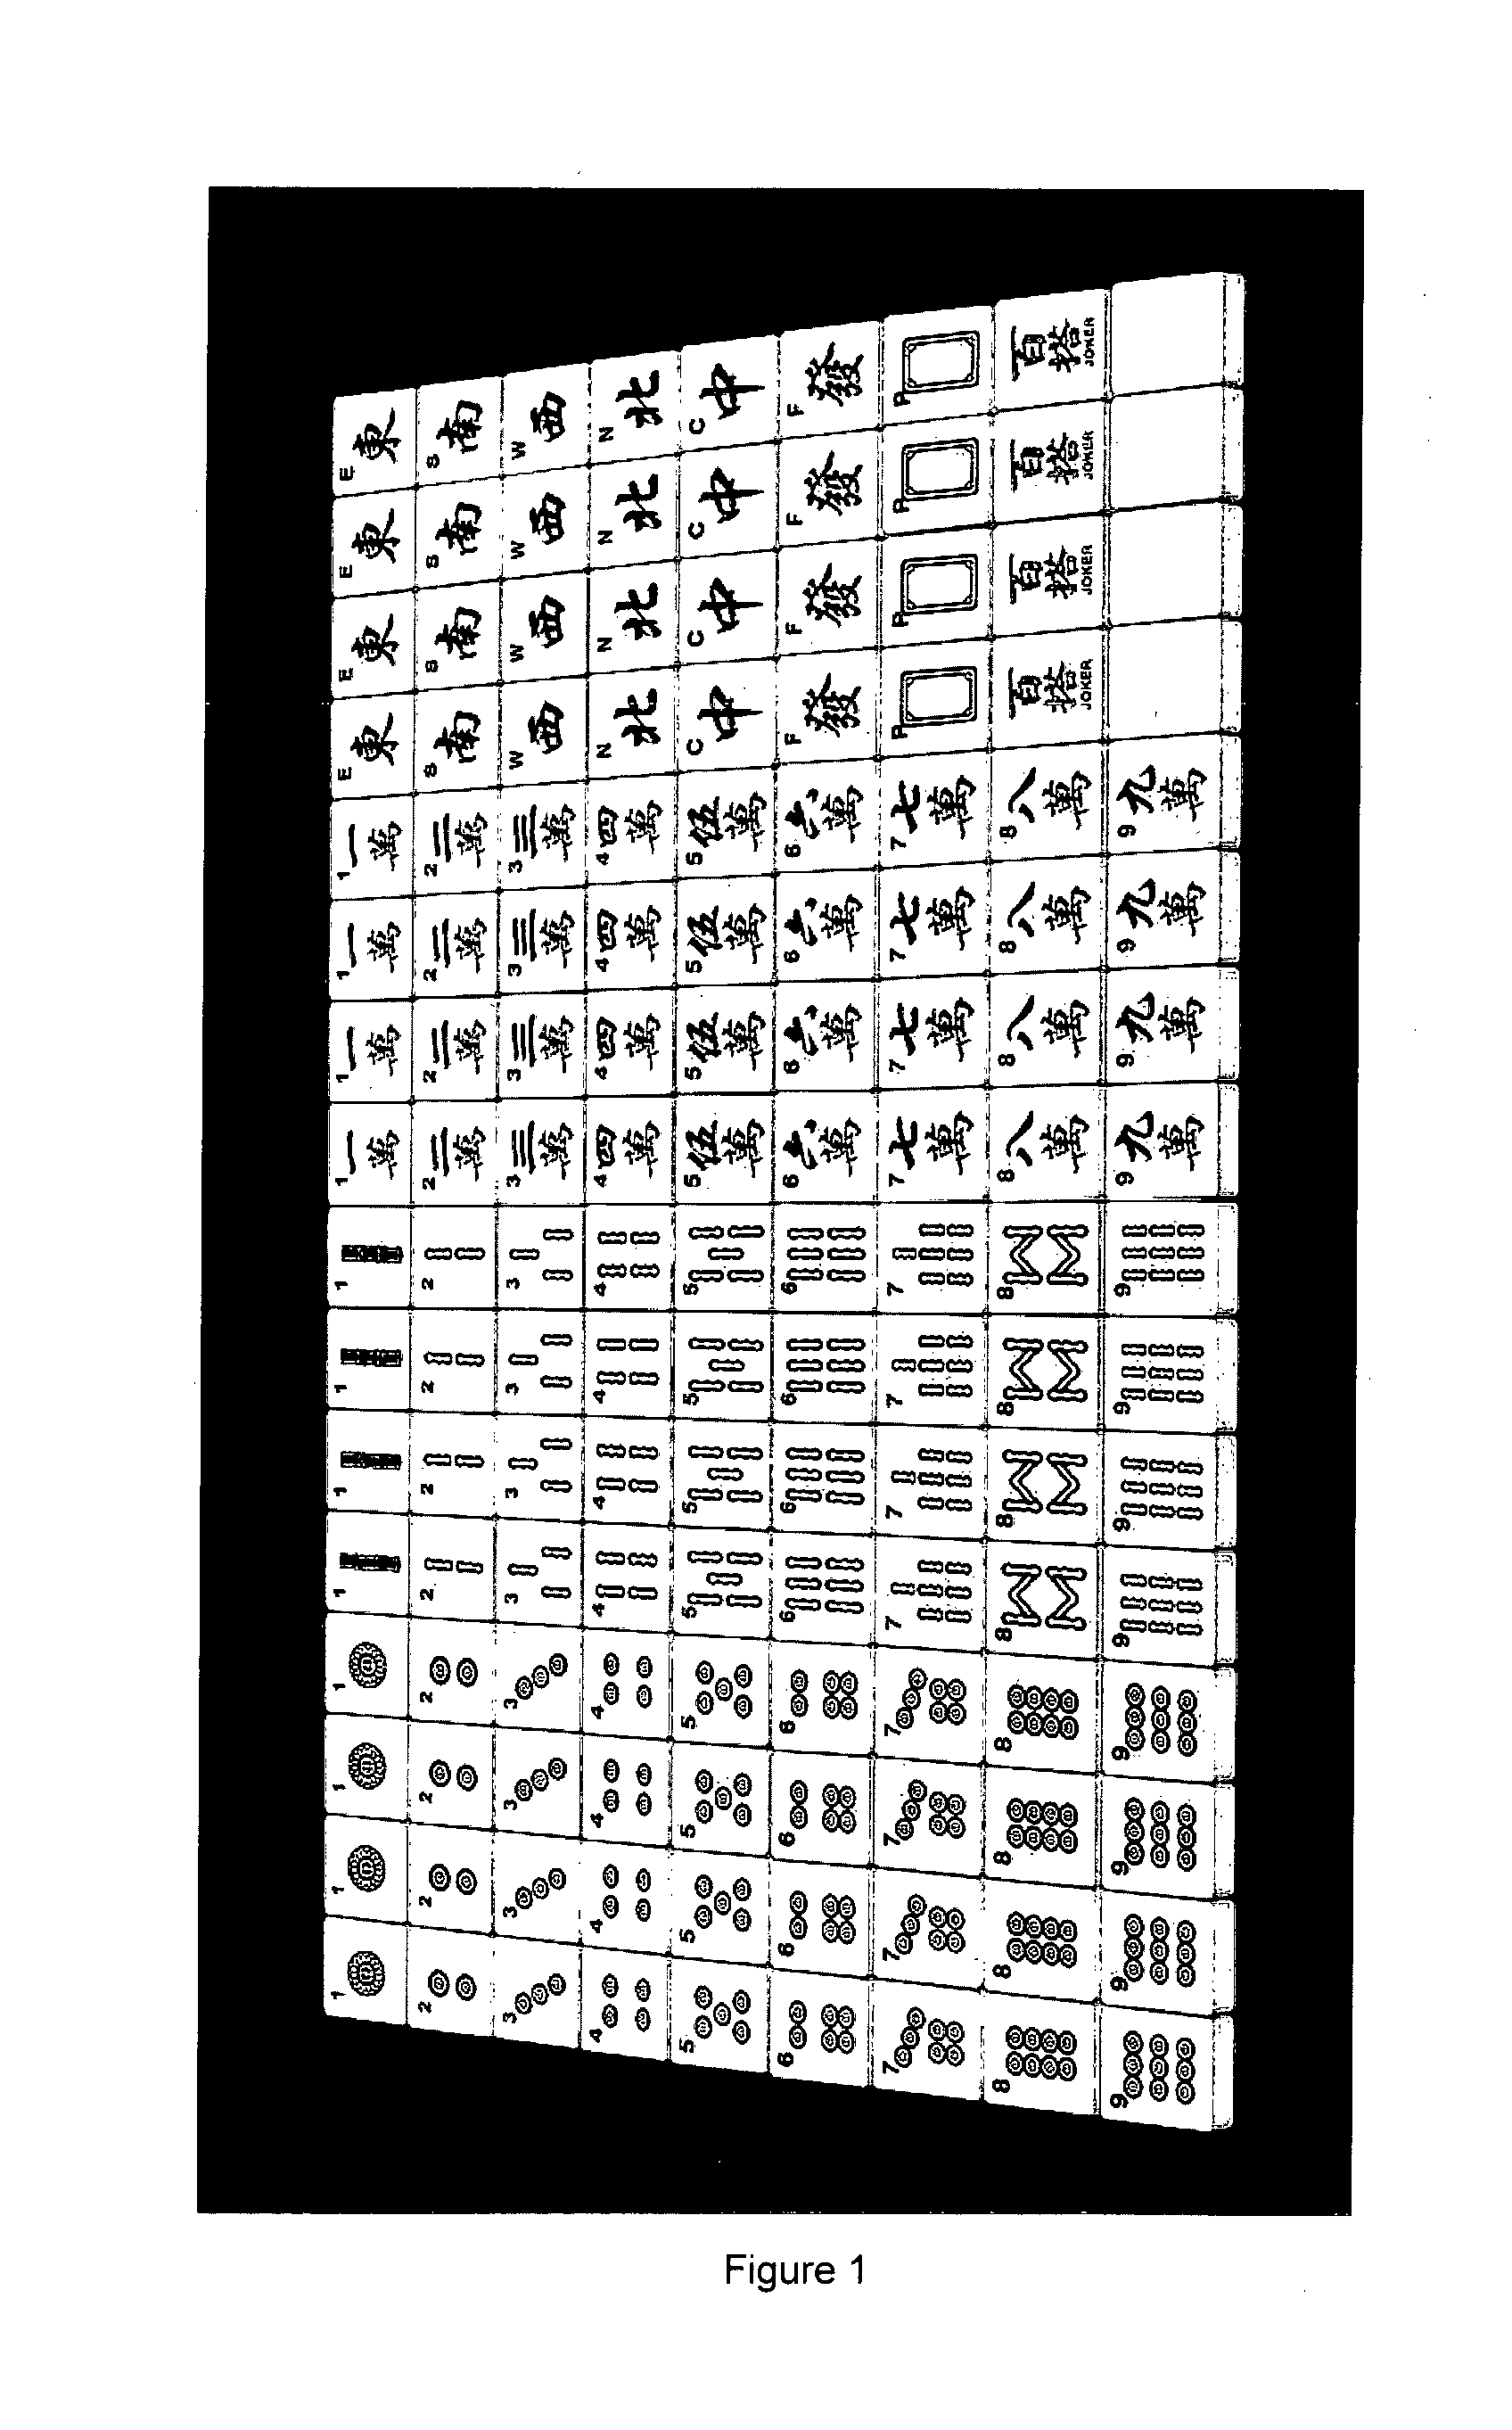 1 1 1 1 1 1 1 1 1 1 1 1 E E E E
一 一 一 一 東 東 東 東
萬 萬 萬 萬
2 2 2 2 2 2 2 2 2 2 2 2 S S S S
二 二 二 二 南 南 南 南
萬 萬 萬 萬
3 3 3 3 3 3 3 3 3 3 3 3 W W W W
三 三 三 三 西 西 西 西
萬 萬 萬 萬
4 4 4 4 4 4 4 4 4 4 4 4 N N N N
四 四 四 四 北 北 北 北
萬 萬 萬 萬
5 5 5 5 5 5 5 5 5 5 5 5 C C C C
伍 伍 伍 伍 中 中 中 中
萬 萬 萬 萬
6 6 6 6 6 6 6 6 6 6 6 6 F F F F
六 六 六 六 發 發 發 發
萬 萬 萬 萬
7 7 7 7 7 7 7 7 7 7 7 7 P P P P
七 七 七 七
萬 萬 萬 萬
8 8 8 8 8 8 8 8 8 8 8 8
八 八 八 八 百 百 百 百
萬 萬 萬 萬 搭 搭 搭 搭
JOKER JOKER JOKER JOKER
9 9 9 9 9 9 9 9 9 9 9 9
九 九 九 九
萬 萬 萬 萬
Figure 1